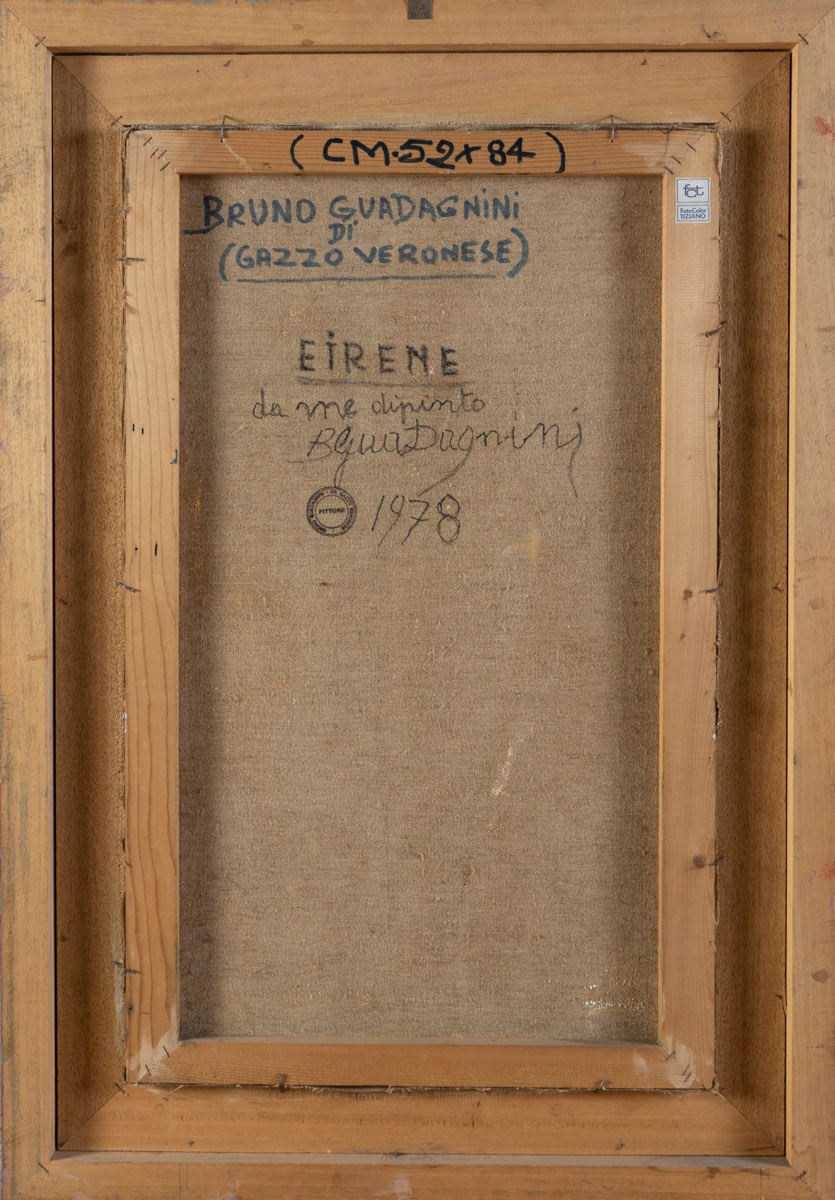 (CM. 52 x 84)
fct
FotoColor
TIZIANO
BRUNO GUADAGNINI
DI
(GAZZO VERONESE)
EIRENE
da me dipinto
BGuaDagnini
PITTORE
1978